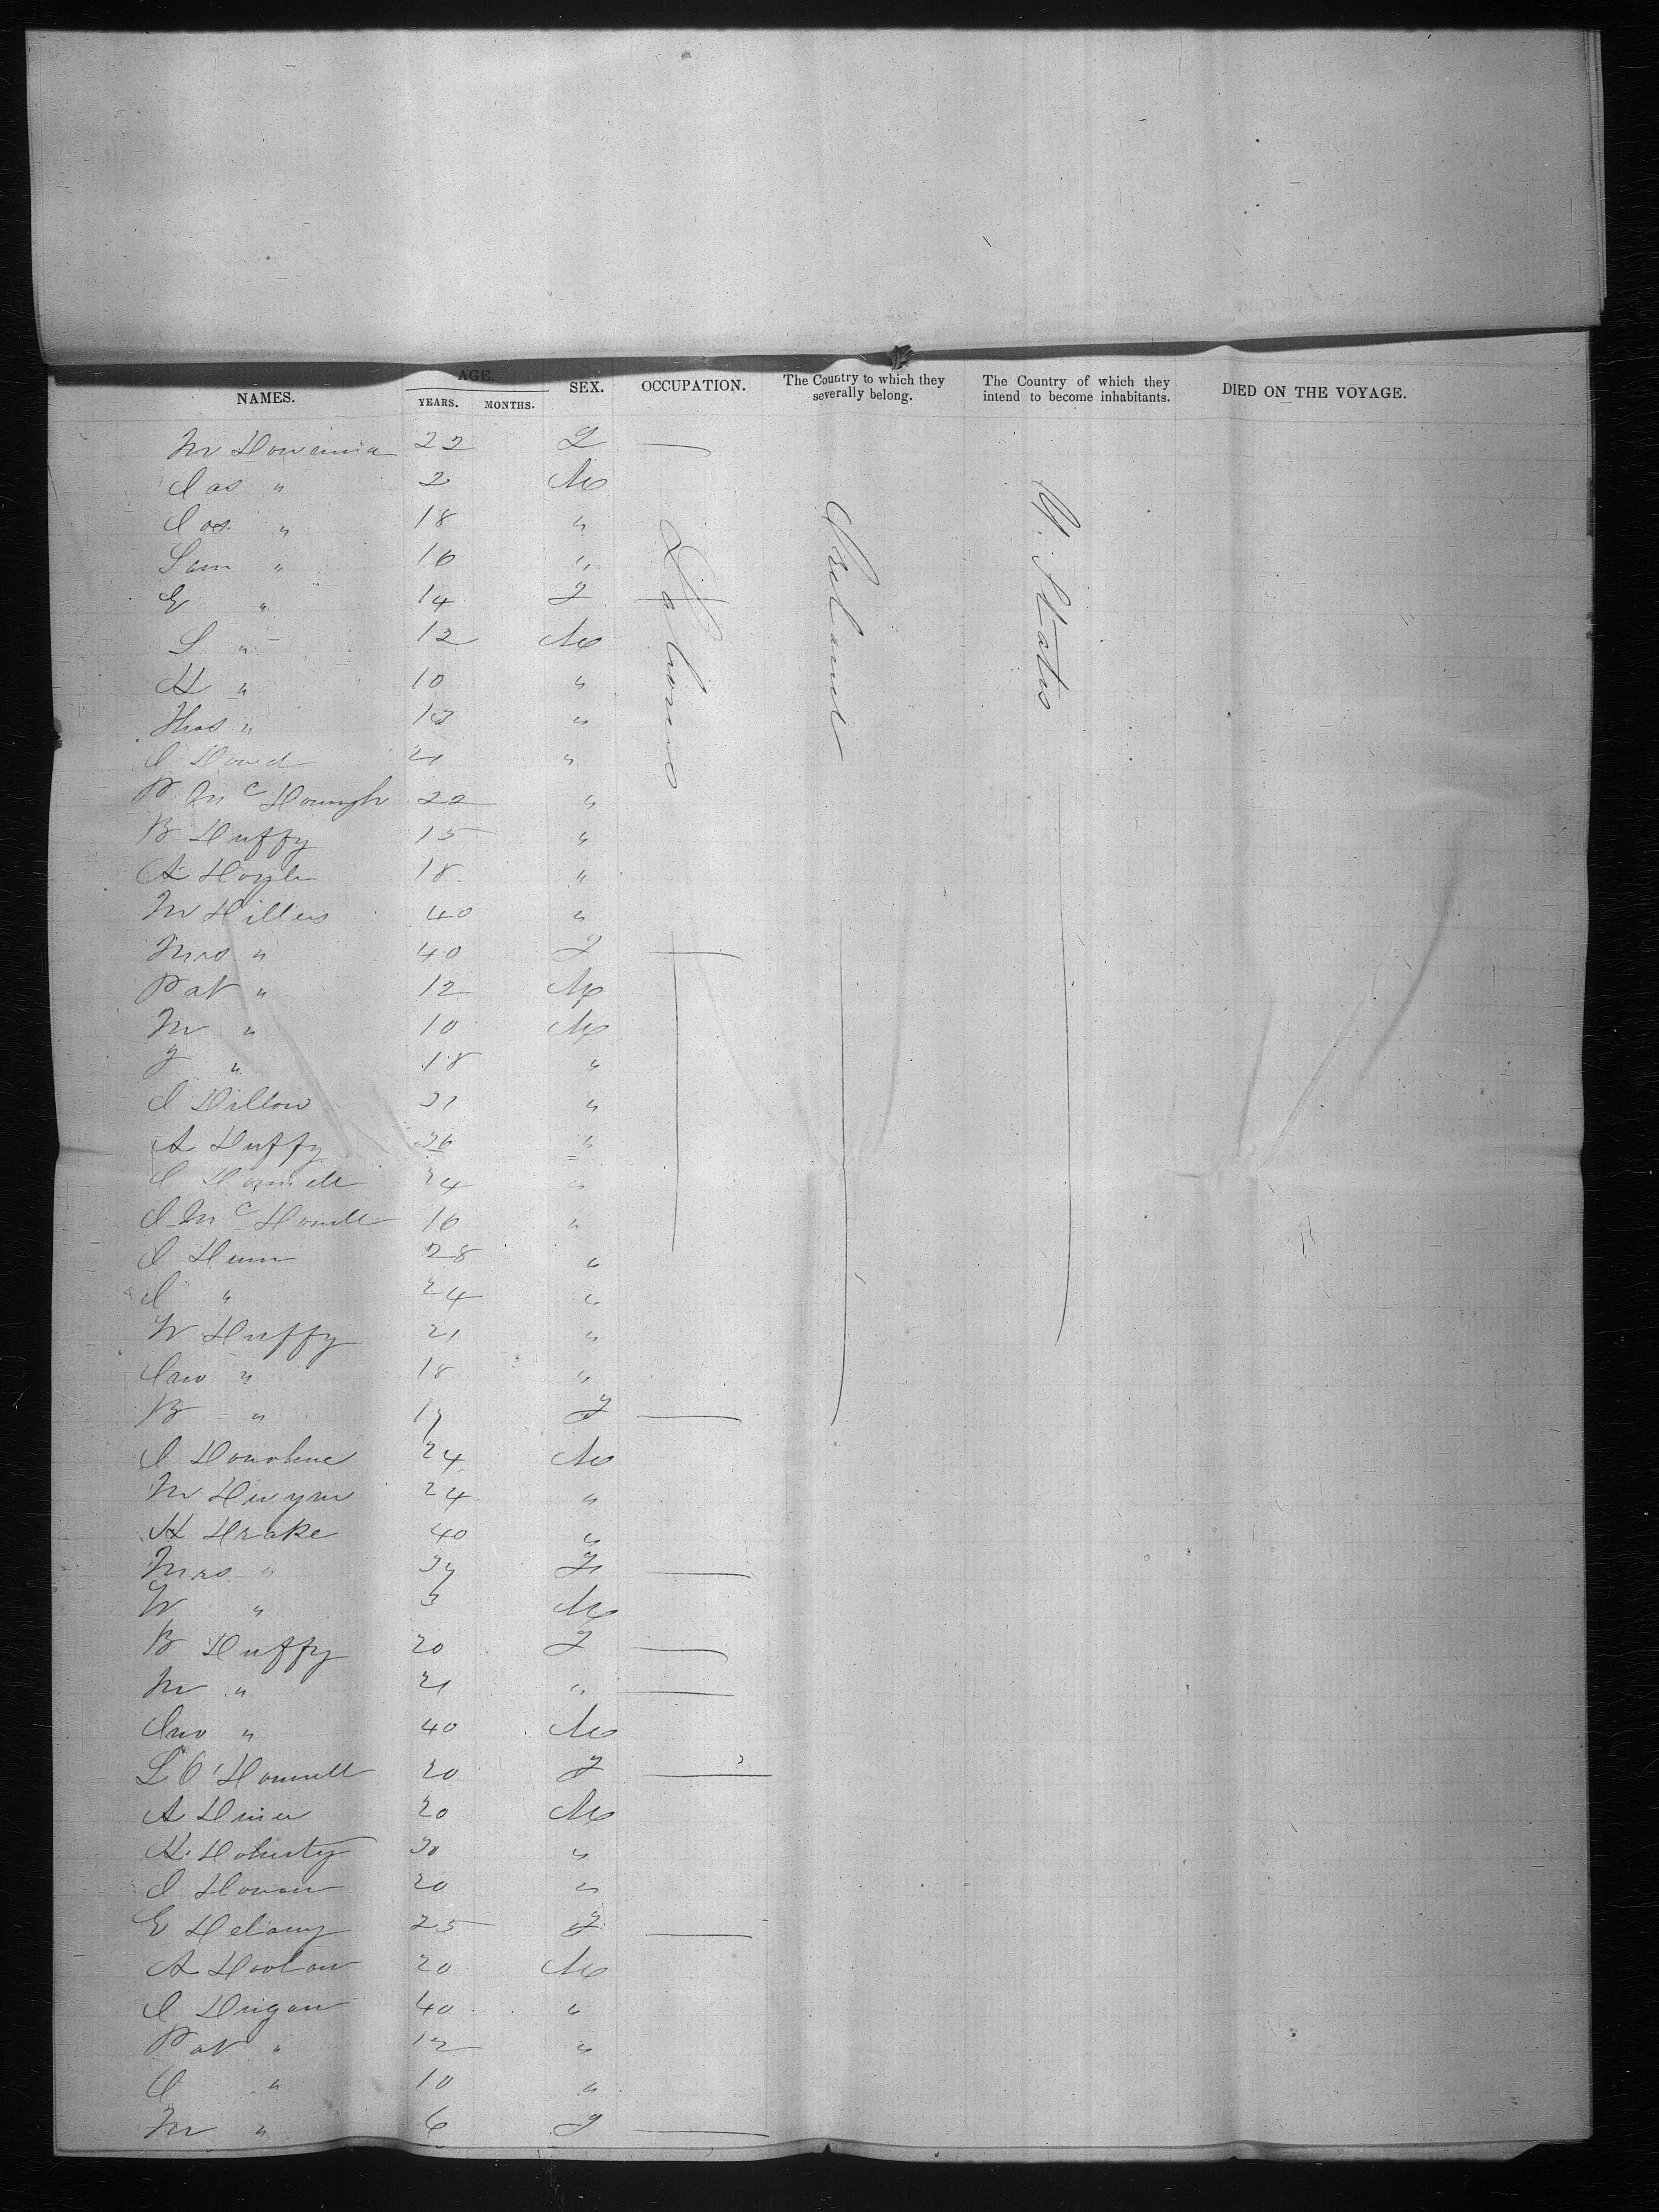 NAMES. AGE. YEARS. MONTHS. SEX. OCCUPATION. The Country to which they severally belong. The Country of which they intend to become inhabitants. DIED ON THE VOYAGE.
Laborers
Ireland
U. States
M 22 F —
Jas " 2 M
Jos " 18 "
Sam " 16 "
E " 14 F
S " 12 M
H " 10 "
Thos " "
J Dowd 21 "
P McDonugh 22 "
B Duffy 15 "
A Doyle 18 "
M Dillers 40 "
Mrs " 40 F —
Pat " 12 M
M " 10 M
" 18 "
J Dillon 31 "
A Duffy 36 "
J Donnell 24 "
J McDonell 16 "
J Dunn 28 "
J " 24 "
W Duffy 21 "
Jno " 18 "
B " 17 F —
J Donohue 24 M
M Dwyer 24 "
H Drake 40 "
Mrs " 37 F —
W " 3 M
B Duffy 20 F —
M " 21 " —
Jno " 40 M
L O'Donnell 20 F —
A 20 M
H Doherty 30 "
J 20 "
E Delany 25 F —
A Doolan 20 M
J Dugan 40 "
Pat " 12 "
" 10 "
M " 6 F —